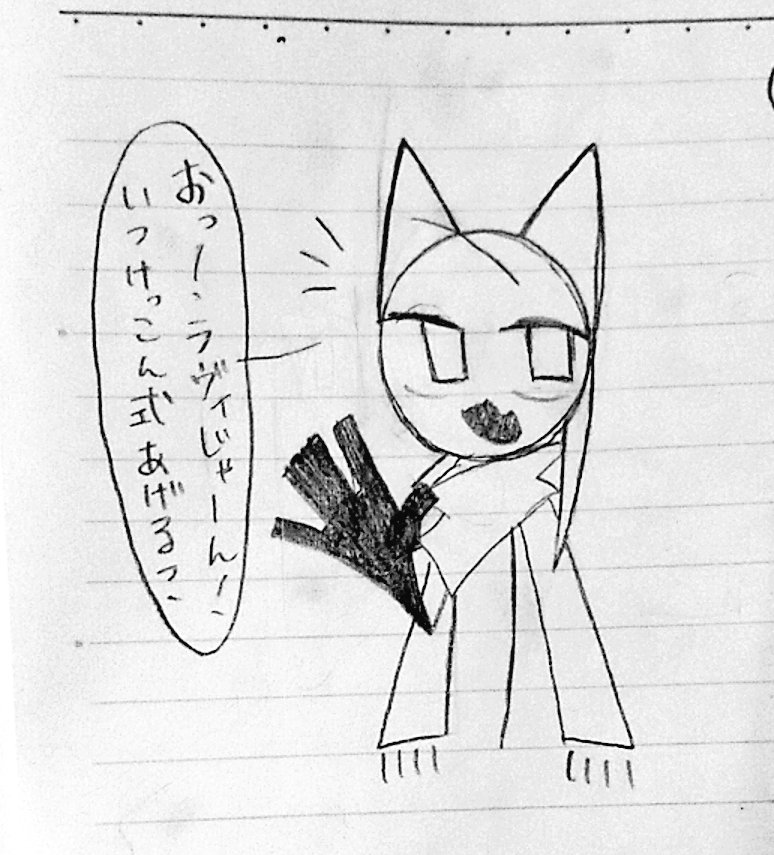 おっー、ラヴィじゃーんー、
いつけっこん式あげるっ、